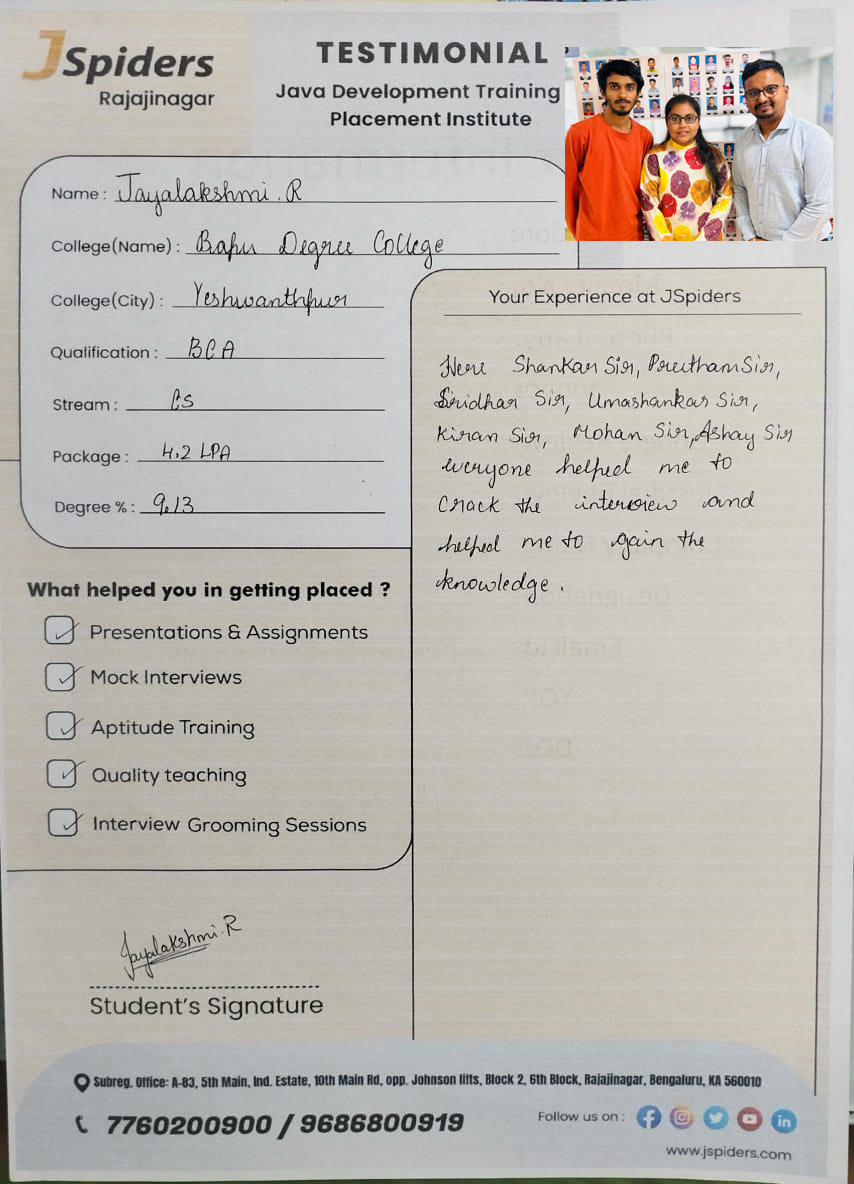 JSpiders
Rajajinagar
TESTIMONIAL
Java Development Training
Placement Institute
Name : Jayalakshmi. R
College(Name) : Bapu Degree College
College(City) : Yeshwanthpur
Qualification : BCA
Stream : CS
Package : 4.2 LPA
Degree % : 9.13
What helped you in getting placed ?
Presentations & Assignments
Mock Interviews
Aptitude Training
Quality teaching
Interview Grooming Sessions
Your Experience at JSpiders
Here Shankar Sir, Preetham Sir,
Sridhar Sir, Umashankar Sir,
Kiran Sir, Mohan Sir, Ashay Sir
everyone helped me to
Crack the interview and
helped me to gain the
knowledge.
Jayalakshmi. R
Student's Signature
Subreg. Office: A-83, 5th Main, Ind. Estate, 10th Main Rd, opp. Johnson lifts, Block 2, 6th Block, Rajajinagar, Bengaluru, KA 560010
7760200900 / 9686800919
Follow us on :
www.jspiders.com